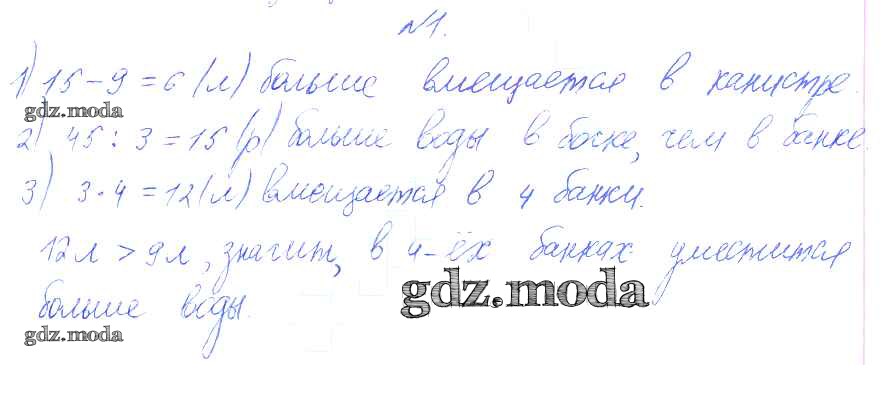 №1.
1) 15 - 9 = 6 (л) больше вмещается в канистре.
gdz.moda
2) 45 : 3 = 15 (р) больше воды в бочке, чем в банке.
3) 3 · 4 = 12 (л) вмещается в 4 банки.
12 л > 9 л, значит, в 4-ёх банках уместится
gdz.moda
больше воды.
gdz.moda